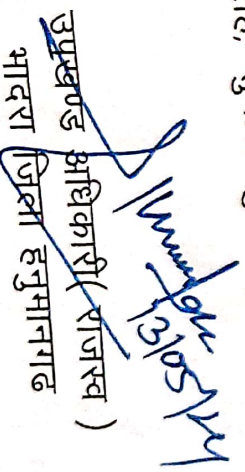 13/05/14
उपखण्ड अधिकारी( राजस्व )
भादरा जिला हनुमानगढ